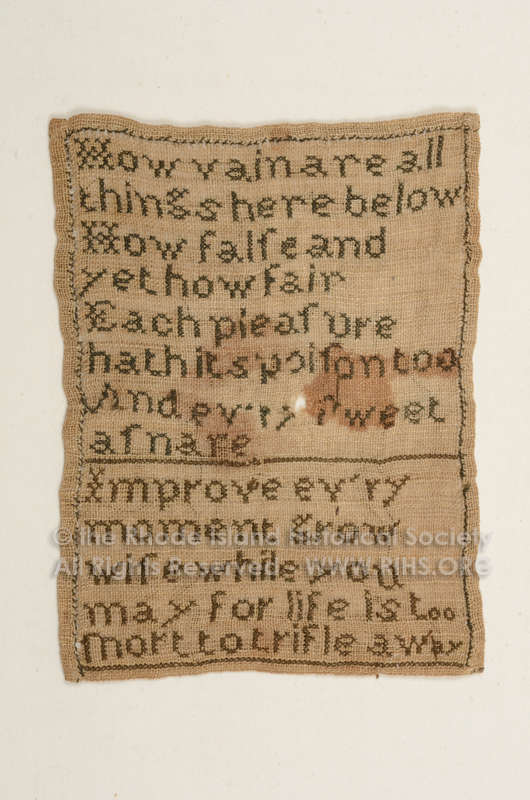 How vain are all
things here below
How falſe and
yet how fair
Each pleaſure
hath its poiſon too
And ev'ry ſweet
a ſnare
Improve ev'ry
moment grow
© The Rhode Island Historical Society
wiſe while you
All Rights Reserved WWW.RIHS.ORG
may for life is too
ſhort to trifle away